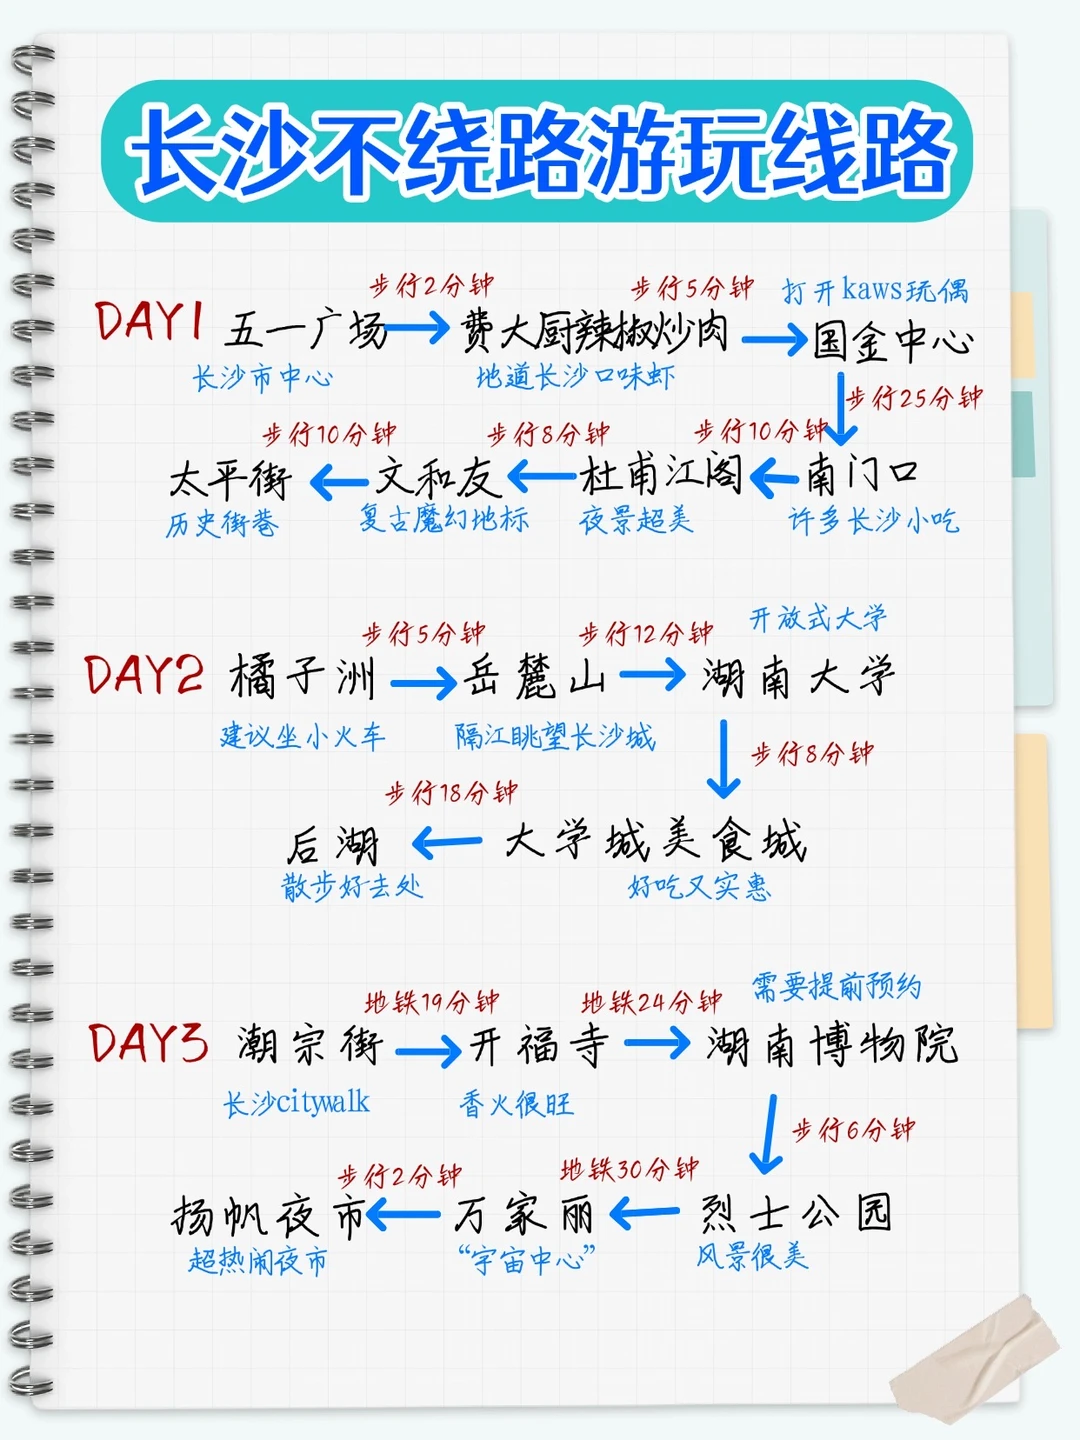 长沙不绕路游玩线路
步行2分钟 步行5分钟 打开kaws玩偶
DAY1 五一广场 → 费大厨辣椒炒肉 → 国金中心
长沙市中心 地道长沙口味虾
步行25分钟
步行10分钟 步行8分钟 步行10分钟
太平街 ← 文和友 ← 杜甫江阁 ← 南门口
历史街巷 复古魔幻地标 夜景超美 许多长沙小吃
开放式大学
步行5分钟 步行12分钟
DAY2 橘子洲 → 岳麓山 → 湖南大学
建议坐小火车 隔江眺望长沙城
步行8分钟
步行18分钟
后湖 ← 大学城美食城
散步好去处 好吃又实惠
需要提前预约
地铁19分钟 地铁24分钟
DAY3 潮宗街 → 开福寺 → 湖南博物院
长沙citywalk 香火很旺
步行6分钟
步行2分钟 地铁30分钟
扬帆夜市 ← 万家丽 ← 烈士公园
超热闹夜市 “宇宙中心” 风景很美